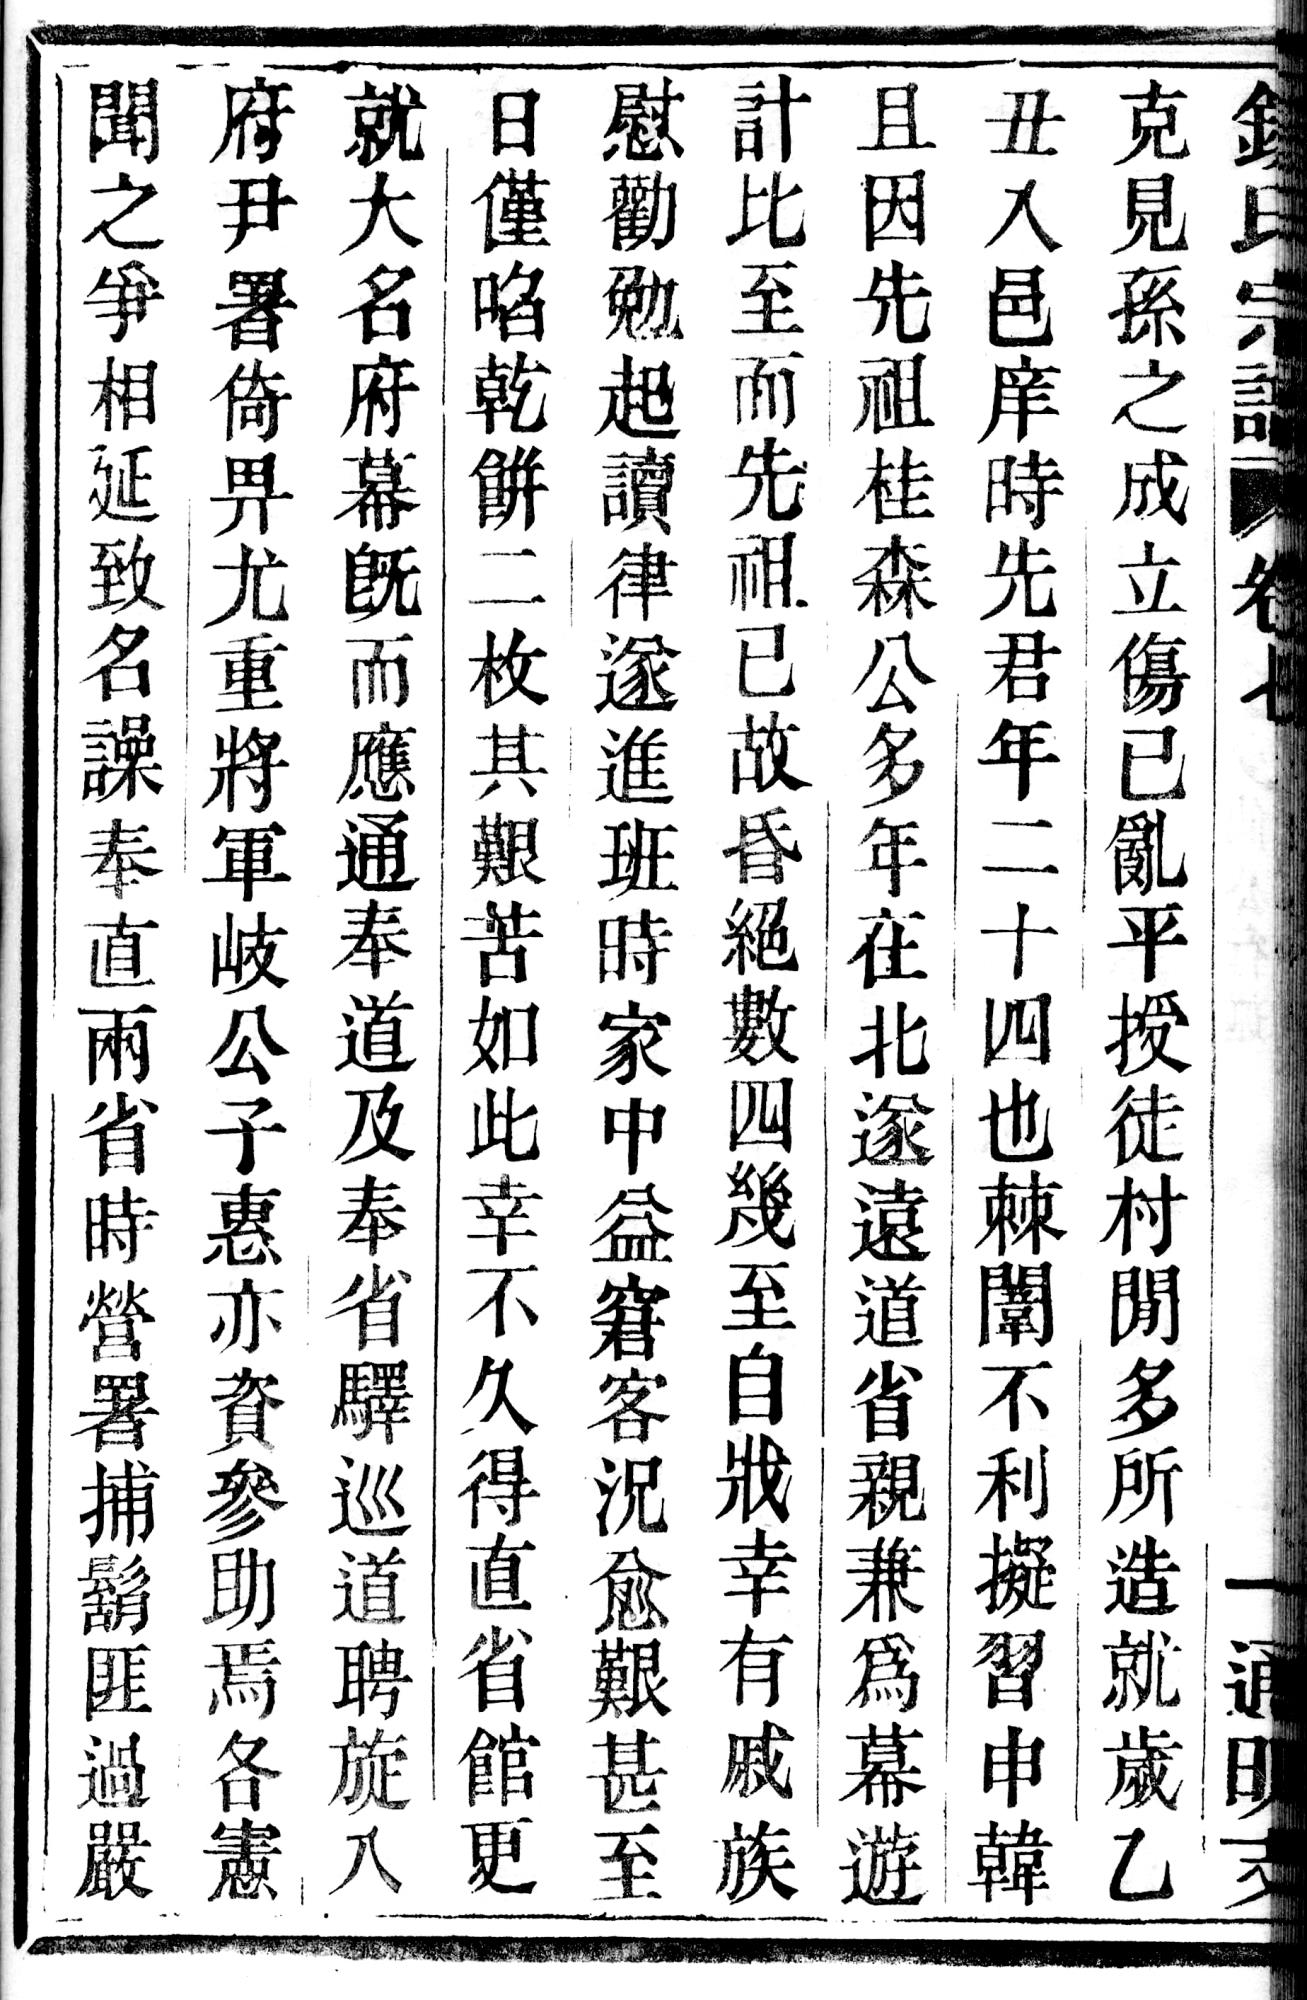 氏宗譜 卷七 一 通明支
克見孫之成立傷已亂平授徒村閒多所造就歲乙
丑入邑庠時先君年二十四也棘闈不利擬習申韓
且因先祖桂森公多年在北遂遠道省親兼爲幕遊
計比至而先祖已故昏絕數四幾至自戕幸有戚族
慰勸勉起讀律遂進班時家中益窘客況愈艱甚至
日僅啗乾餅二枚其艱苦如此幸不久得直省館更
就大名府幕旣而應通奉道及奉省驛巡道聘旋入
府尹署倚畀尤重將軍岐公子惠亦資參助焉各憲
聞之爭相延致名譟奉直兩省時營署捕鬍匪過嚴